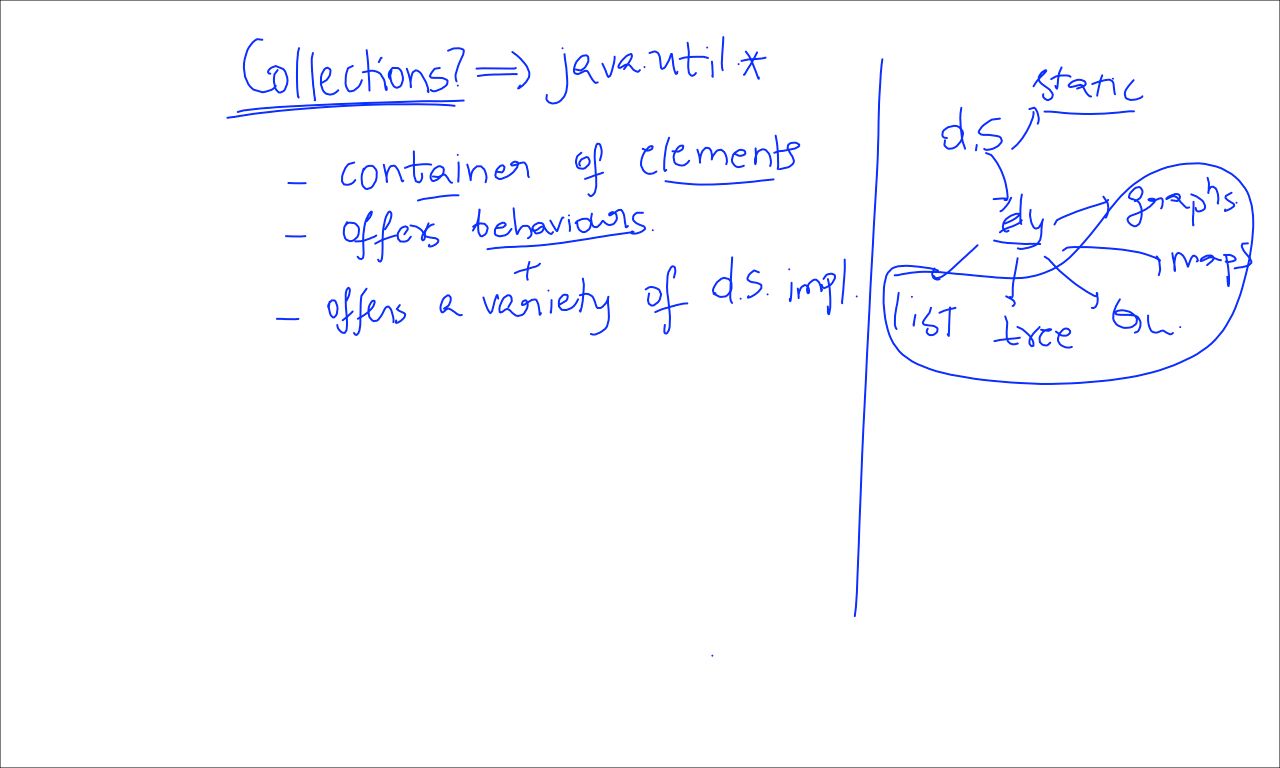 Collections? ⇒ java.util.*
- container of elements
- offers behaviours.
+
- offers a variety of d.s. impl.
static
d.s
dy
graphs
maps
list
tree
Qu.